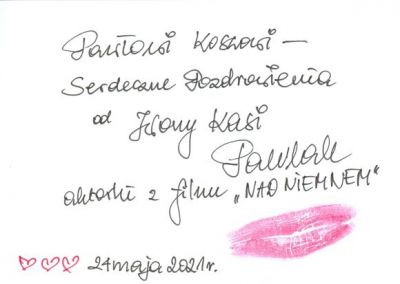 Pawłowi Kossowi –
Serdeczne Pozdrowienia
od Iwony Kasi
Pawlak
aktorki z filmu „NAD NIEMNEM”
24 maja 2021r.